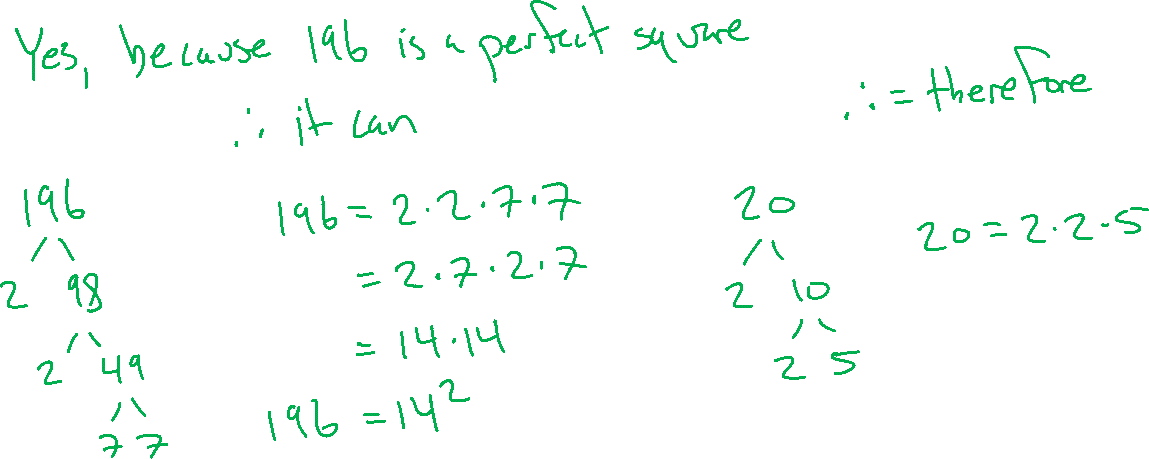 Yes, because 196 is a perfect square
∴ it can
∴ = therefore
196
2 98
2 49
7 7
196 = 2·2·7·7
= 2·7·2·7
= 14·14
196 = 14²
20
2 10
2 5
20 = 2·2·5